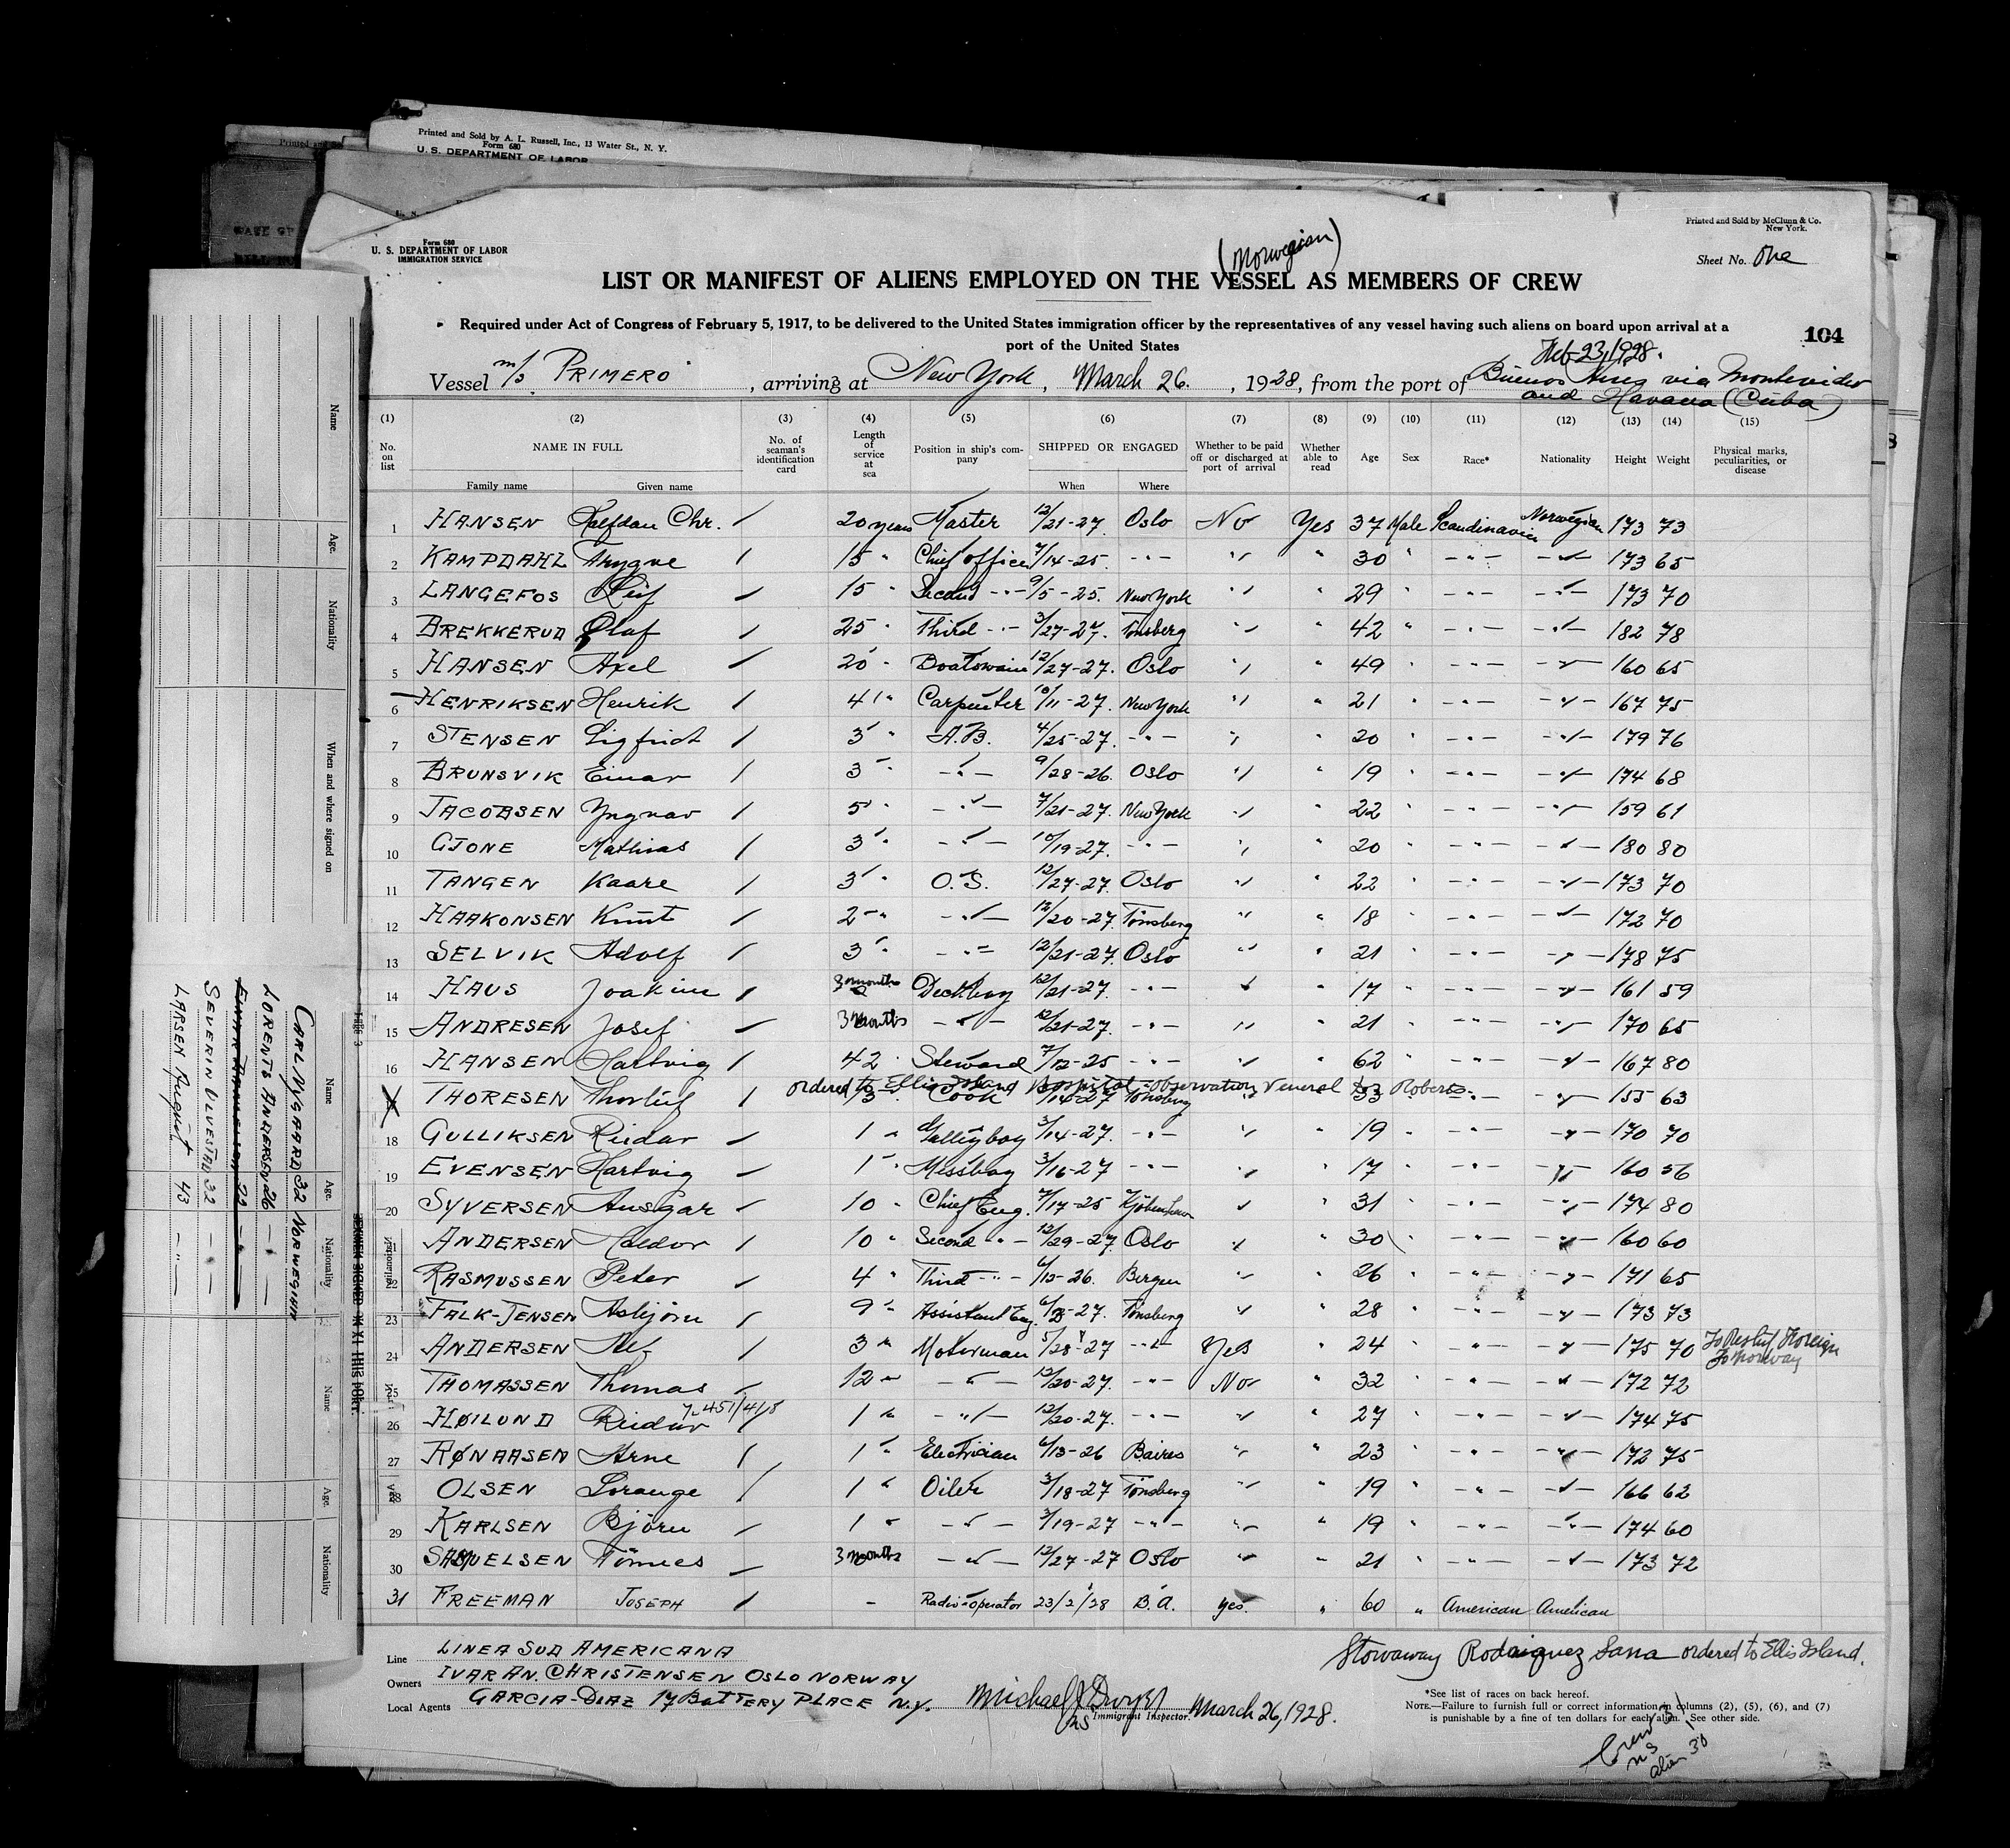 Printed and Sold by A. L. Russell, Inc., 13 Water St., N. Y.
Form 680
U. S. DEPARTMENT OF LABOR
Printed and Sold by McClunn & Co.
New York.
Form 680
U. S. DEPARTMENT OF LABOR
IMMIGRATION SERVICE
(Norwegian)
Sheet No. One
LIST OR MANIFEST OF ALIENS EMPLOYED ON THE VESSEL AS MEMBERS OF CREW
Required under Act of Congress of February 5, 1917, to be delivered to the United States immigration officer by the representatives of any vessel having such aliens on board upon arrival at a
port of the United States
104
Feb 23, 1928.
Vessel m/s PRIMERO, arriving at New York, March 26. , 1928, from the port of Buenos Aires via Montevideo
and Havana (Cuba)
(1) (2) (3) (4) (5) (6) (7) (8) (9) (10) (11) (12) (13) (14) (15)
No. on list NAME IN FULL No. of seaman's identification card Length of service at sea Position in ship's company SHIPPED OR ENGAGED Whether to be paid off or discharged at port of arrival Whether able to read Age Sex Race* Nationality Height Weight Physical marks, peculiarities, or disease
Family name Given name When Where
1 HANSEN Halfdan Chr. / 20 years Master 12/21-27. Oslo No Yes 37 Male Scandinavian Norwegian 173 73
2 KAMPDAHL Thrygve / 15 " Chief officer 7/14-25. -"- " " 30 " -"- -"- 173 65
3 LANGEFOS Leif / 15 " Second -"- 9/5-25. New York " " 29 " -"- -"- 173 70
4 BREKKERUD Olaf / 25 " Third -"- 3/27-27. Tønsberg " " 42 " -"- -"- 182 78
5 HANSEN Axel / 20 " Boatswain 12/27-27. Oslo " " 49 " -"- -"- 160 65
6 HENRIKSEN Henrik / 4 " Carpenter 10/11-27. New York " " 21 " -"- -"- 167 75
7 STENSEN Sigfrid / 3 " A.B. 4/25-27. -"- " " 20 " -"- -"- 179 76
8 BRUNSVIK Einar / 3 " -"- 9/28-26. Oslo " " 19 " -"- -"- 174 68
9 JACOBSEN Yngvar / 5 " -"- 7/21-27. New York " " 22 " -"- -"- 159 61
10 GJONE Mathias / 3 " -"- 10/19-27. -"- " " 20 " -"- -"- 180 80
11 TANGEN Kaare / 3 " O.S. 12/27-27. Oslo " " 22 " -"- -"- 173 70
12 HAAKONSEN Knut / 2 " -"- 12/20-27. Tönsberg " " 18 " -"- -"- 172 70
13 SELVIK Adolf / 3 " -"- 12/21-27. Oslo " " 21 " -"- -"- 178 75
14 HAUS Joakim / 3 months Deckboy 12/21-27. -"- " " 17 " -"- -"- 161 59
15 ANDRESEN Josef / 3 months -"- 12/21-27. -"- " " 21 " -"- -"- 170 65
16 HANSEN Hartvig / 42 " Steward 7/12-25 -"- " " 62 " -"- -"- 167 80
ordered to Ellis Island Hospital - observation Veneral Roberts
THORESEN Thorleif / 13 " Cook 3/14-27 Tönsberg " " 33 " -"- -"- 155 63
18 GULLIKSEN Reidar / 1 " Galleyboy 3/14-27. -"- " " 19 " -"- -"- 170 70
19 EVENSEN Hartvig / 1 " Messboy 3/16-27 -"- " " 17 " -"- -"- 160 56
20 SYVERSEN Ansgar / 10 " Chief Eng. 7/17-25 " " 31 " -"- -"- 174 80
21 ANDERSEN Haldor / 10 " Second -"- 12/29-27. Oslo " " 30 " -"- -"- 160 60
22 RASMUSSEN Peter / 4 " Third -"- 6/13-26. Bergen " " 26 " -"- -"- 171 65
23 FALK-JENSEN Asbjörn / 9 " Assistant Eng. 27. Tönsberg " " 28 " -"- -"- 173 73
24 ANDERSEN Alf / 3 " Motorman 5/28-27 -"- Yes " 24 " -"- -"- 175 70 To Reship Foreign
To Norway
25 THOMASSEN Thomas / 12 " -"- 12/20-27. -"- No " 32 " -"- -"- 172 72
26 HØILUND Reidar / 1 " -"- 12/20-27. -"- " " 27 " -"- -"- 174 75
27 RØNAASEN Arne / 1 " Electrician 6/13-26 Baires " " 23 " -"- -"- 172 75
28 OLSEN Lorange / 1 " Oiler 3/18-27 Tönsberg " " 19 " -"- -"- 166 62
29 KARLSEN Björn / 1 " -"- 3/19-27 -"- " " 19 " -"- -"- 174 60
30 SAMUELSEN Tönnes / 3 months -"- 12/27-27 Oslo " " 21 " -"- -"- 173 72
31 FREEMAN JOSEPH / - Radio-operator 23/2/28 B.A. yes. " 60 " American American
Line LINEA SUD AMERICANA
Owners IVAR AN. CHRISTENSEN OSLO NORWAY
Local Agents GARCIA-DIAZ 17 BATTERY PLACE N.Y.
Michael J Dwyer
Immigrant Inspector. March 26, 1928.
Stowaway Rodriquez Sana ordered to Ellis Island.
*See list of races on back hereof.
NOTE.—Failure to furnish full or correct information in columns (2), (5), (6), and (7)
is punishable by a fine of ten dollars for each alien. See other side.
Crew 31
alien 30
Name Age. Nationality When and where signed on
Name Age. Nationality
CARL NYGAARD 32 NORWEGIAN
LORENTS ANDERSEN 26 -"-
SEVERIN OLVESTAD 32 -"-
LARSEN August 43 -"-
Name Age. Nationality